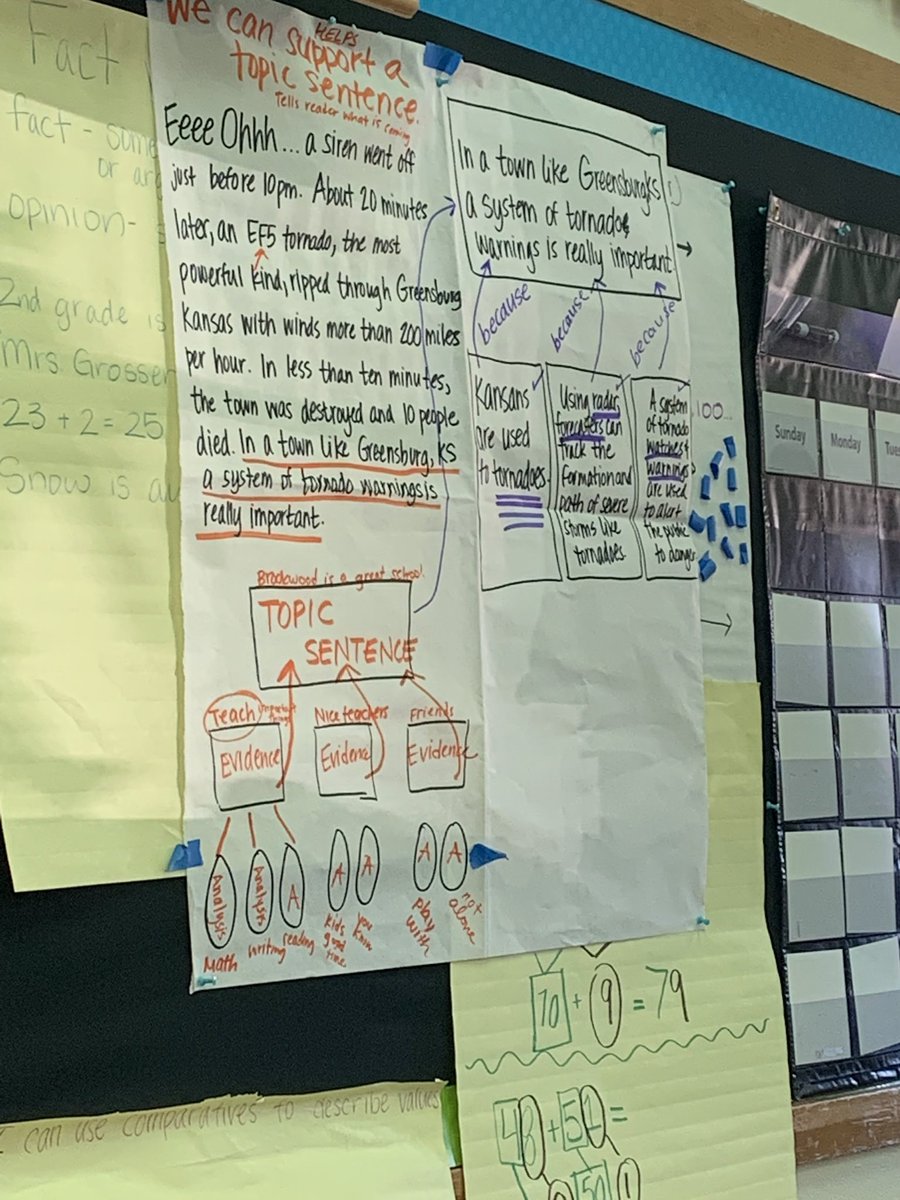 Fact
fact - some
or
opinion-
2nd grade is
Mrs Grosser
23 + 2 = 25
Snow is
We can support a
HELPS
topic sentence.
Tells reader what is coming
Eeee Ohhh... a siren went off
just before 10pm. About 20 minutes
later, an EF5 tornado, the most
powerful kind, ripped through Greensburg
Kansas with winds more than 200 miles
per hour. In less than ten minutes,
the town was destroyed and 10 people
died. In a town like Greensburg, KS
a system of tornado warnings is
really important.
Brookwood is a great school.
TOPIC
SENTENCE
Teach important things
Nice teachers
Friends
Evidence
Evidence
Evidence
Analysis
Analysis
A
A
A
A
A
Math
writing
reading
kids good time
you know
play with
not alone
In a town like Greensburg KS
a system of tornado
warnings is really important
because
because
because
Kansans
are used
to tornadoes.
Using radar,
forecasters can
track the
formation and
path of severe
storms like
tornadoes
A system
of tornado
watches &
warnings
are used
to alert
the public
to danger
100...
Sunday
Monday
Tues
70 + 9 = 79
48 + 51 =
50 1
I can use comparatives to describe values